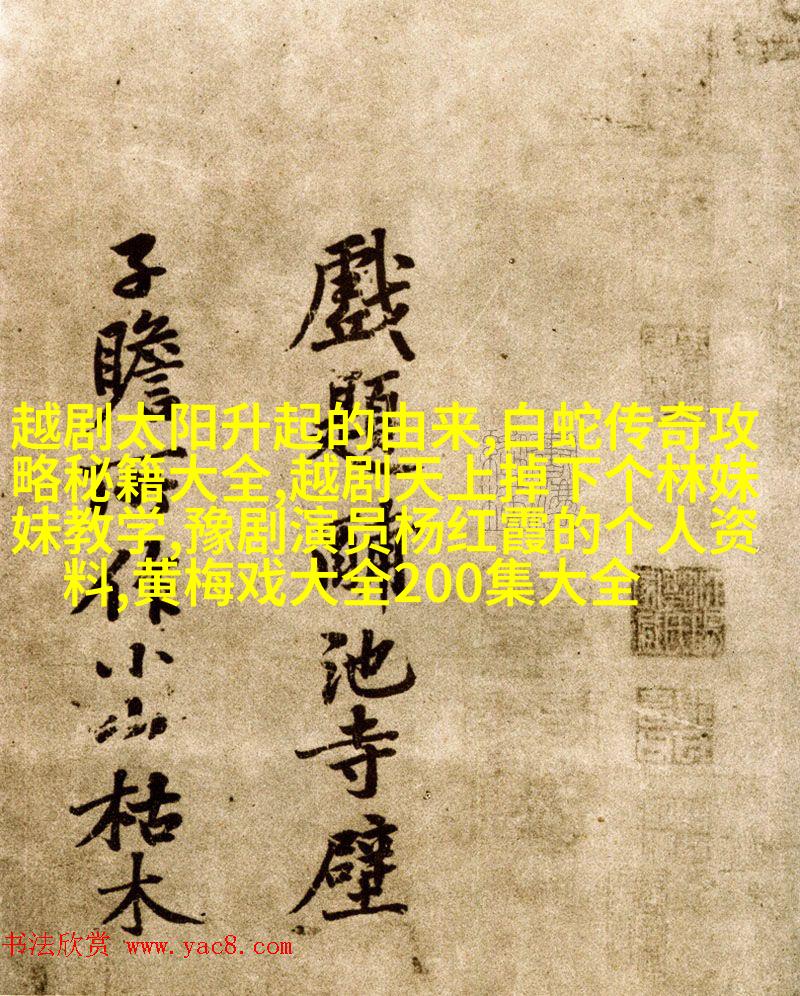 戲題池寺壁
子瞻作小山枯木
越剧太阳升起的由来,白蛇传奇攻
略秘籍大全,越剧天上掉下个林妹
妹教学,豫剧演员杨红霞的个人资
料,黄梅戏大全200集大全
书法欣赏 www.yac8.com